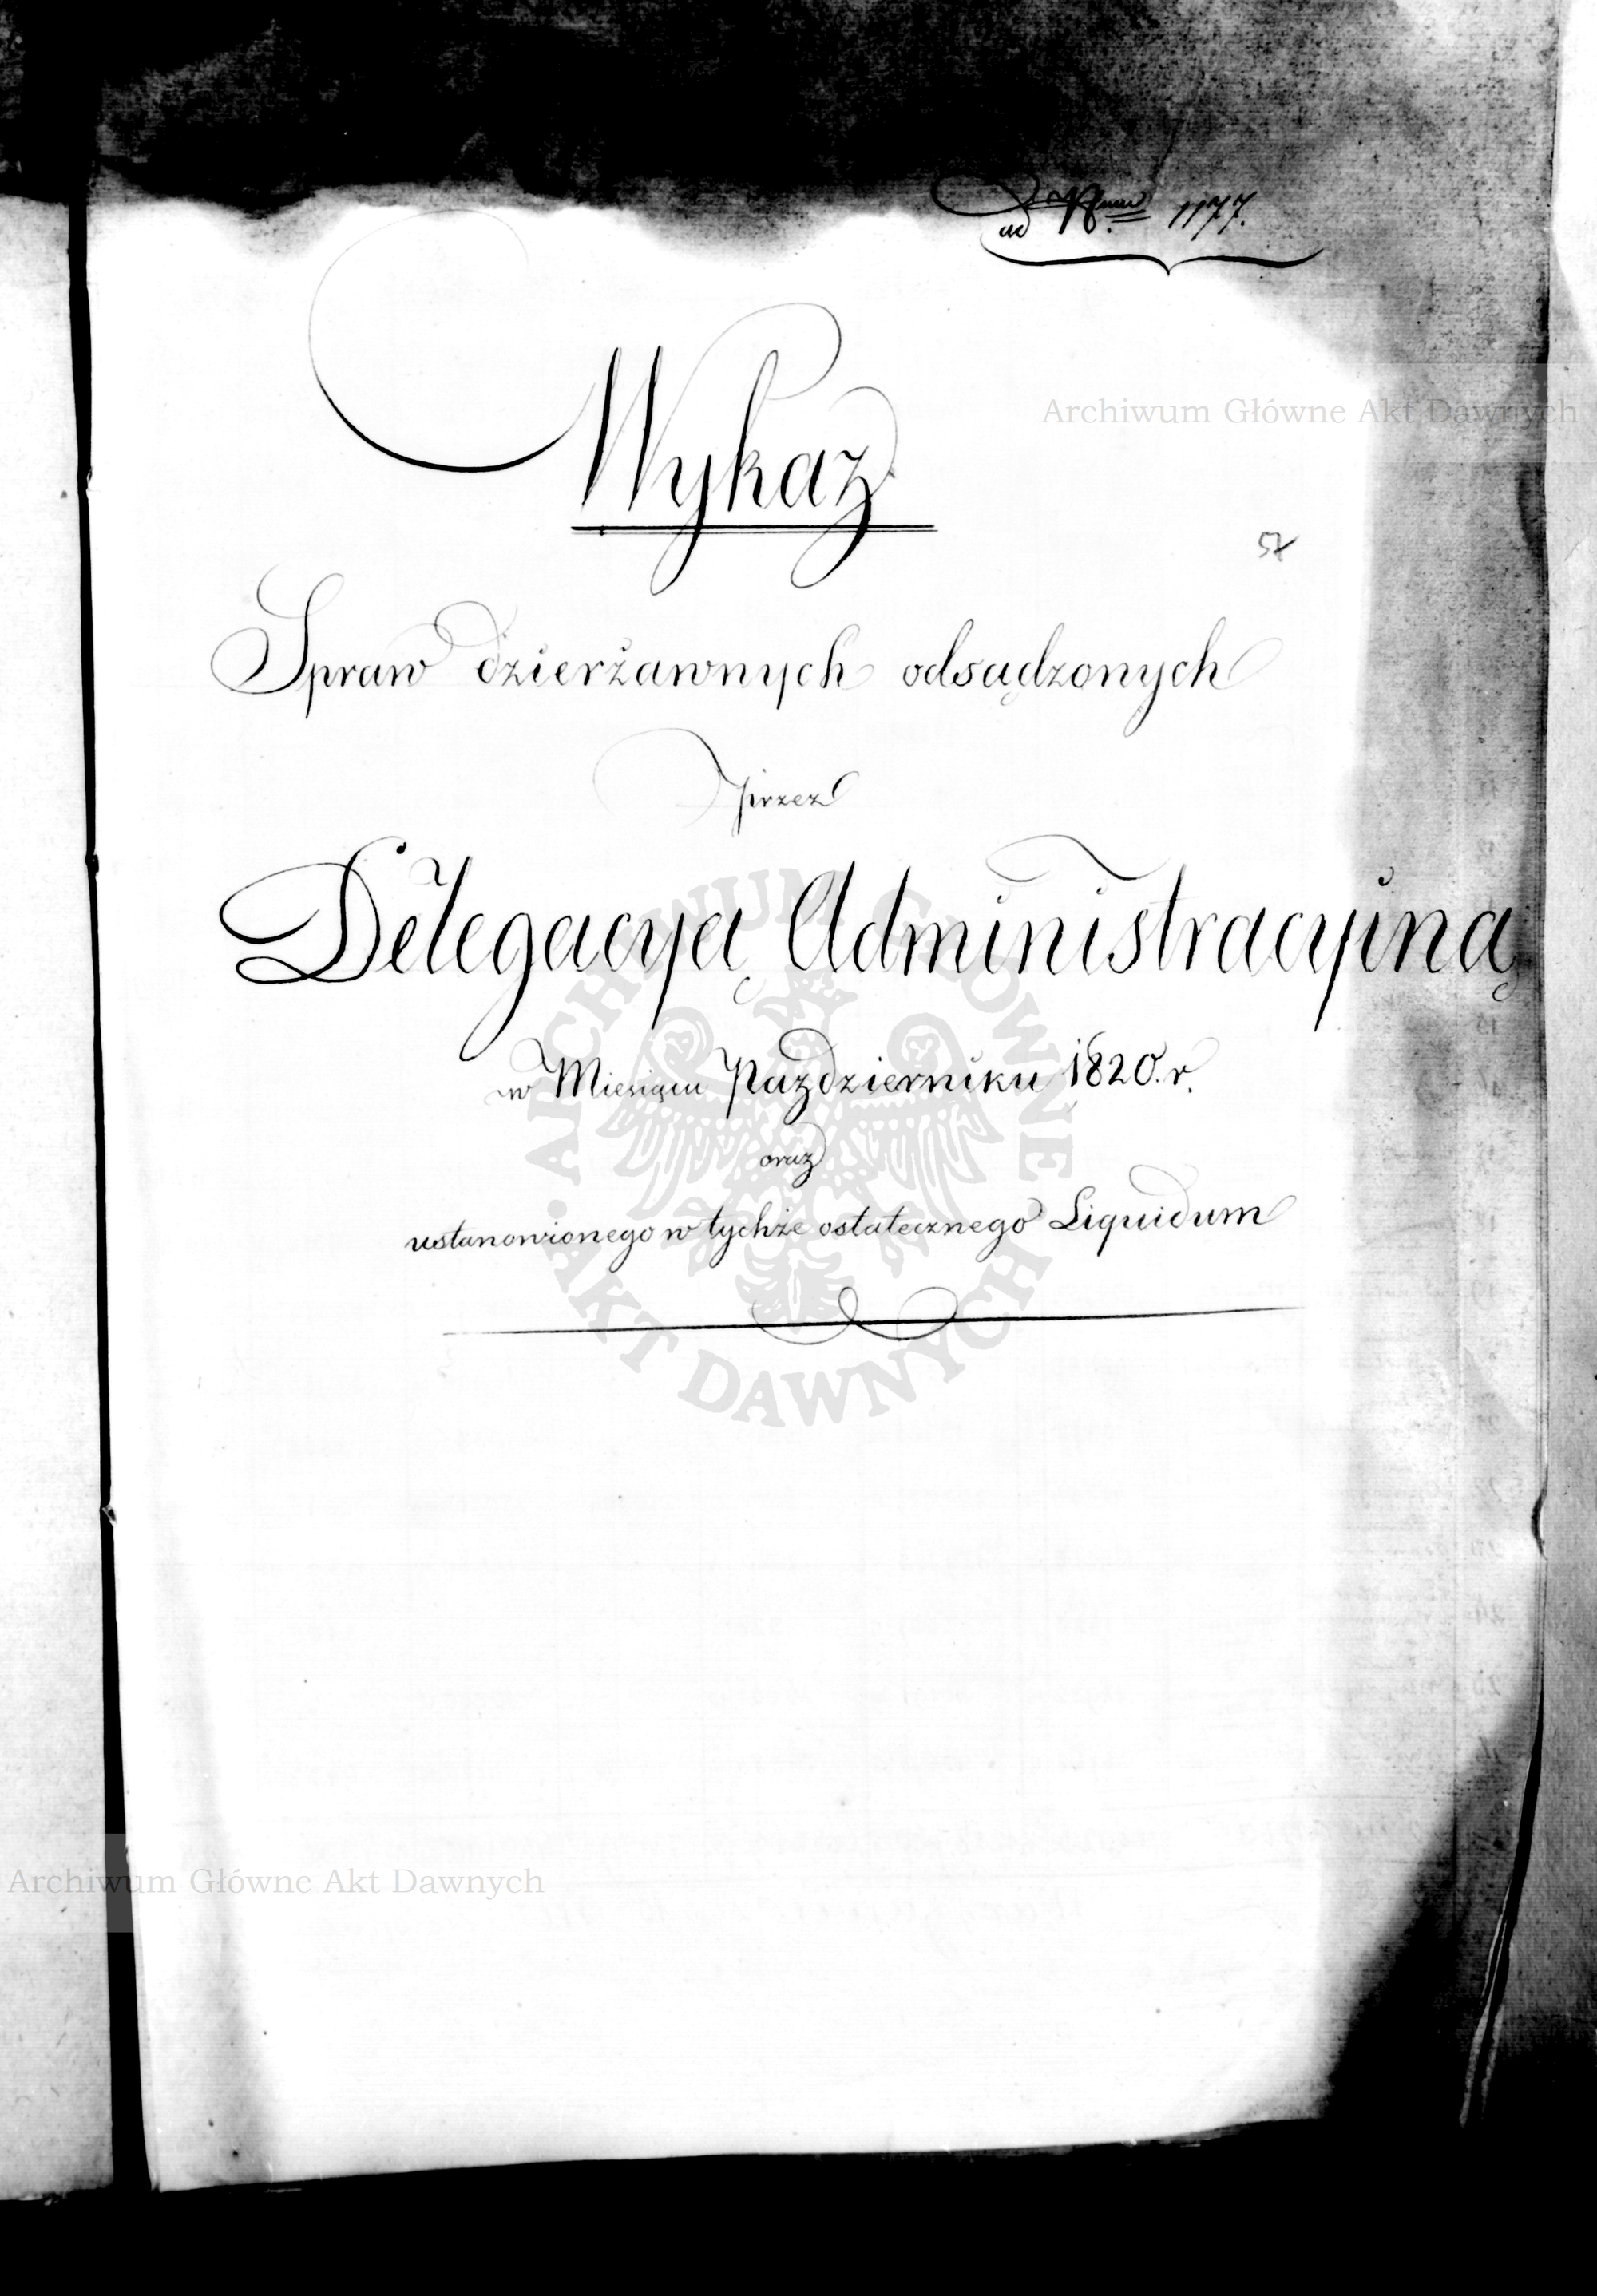 ad Nrum 1177.
Archiwum Główne Akt Dawnych
Wykaz
57
Spraw dzierżawnych odsądzonych
przez
Delegacyą Administracyiną
w Miesiącu Pazdzierniku 1820. r.
oraz
ustanowionego w tychże ostatecznego Liquidum
ARCHIWUM GŁÓWNE AKT DAWNYCH
Archiwum Główne Akt Dawnych